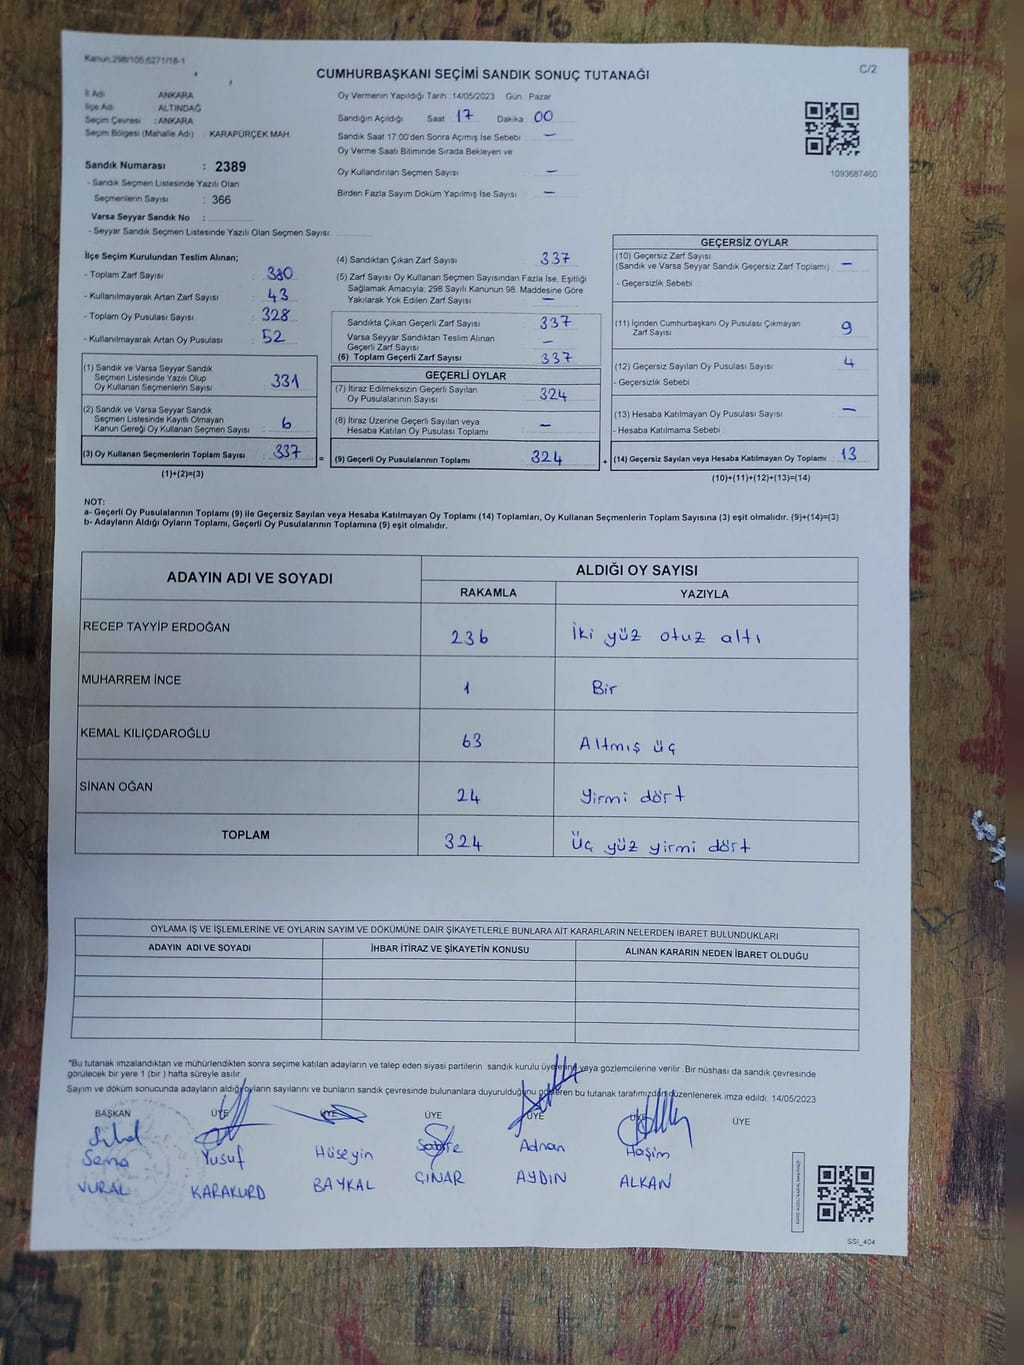 Kanun:298/105,6271/18-1
CUMHURBAŞKANI SEÇİMİ SANDIK SONUÇ TUTANAĞI
C/2
İl Adı ANKARA
İlçe Adı ALTINDAĞ
Seçim Çevresi : ANKARA
Seçim Bölgesi (Mahalle Adı) : KARAPÜRÇEK MAH.
Sandık Numarası : 2389
- Sandık Seçmen Listesinde Yazılı Olan
Seçmenlerin Sayısı : 366
Varsa Seyyar Sandık No :
- Seyyar Sandık Seçmen Listesinde Yazılı Olan Seçmen Sayısı:
Oy Vermenin Yapıldığı Tarih :14/05/2023 Gün: Pazar
Sandığın Açıldığı Saat 17 Dakika 00
Sandık Saat 17.00'den Sonra Açımış İse Sebebi : —
Oy Verme Saati Bitiminde Sırada Bekleyen ve
Oy Kullandırılan Seçmen Sayısı : —
Birden Fazla Sayım Döküm Yapılmış İse Sayısı : —
1093687460
İlçe Seçim Kurulundan Teslim Alınan;
- Toplam Zarf Sayısı : 380
- Kullanılmayarak Artan Zarf Sayısı : 43
- Toplam Oy Pusulası Sayısı : 328
- Kullanılmayarak Artan Oy Pusulası : 52
(1) Sandık ve Varsa Seyyar Sandık
Seçmen Listesinde Yazılı Olup
Oy Kullanan Seçmenlerin Sayısı : 331
(2) Sandık ve Varsa Seyyar Sandık
Seçmen Listesinde Kayıtlı Olmayan
Kanun Gereği Oy Kullanan Seçmen Sayısı : 6
(3) Oy Kullanan Seçmenlerin Toplam Sayısı : 337
(1)+(2)=(3)
(4) Sandıktan Çıkan Zarf Sayısı : 337
(5) Zarf Sayısı Oy Kullanan Seçmen Sayısından Fazla İse, Eşitliği
Sağlamak Amacıyla; 298 Sayılı Kanunun 98. Maddesine Göre
Yakılarak Yok Edilen Zarf Sayısı : —
Sandıkta Çıkan Geçerli Zarf Sayısı : 337
Varsa Seyyar Sandıktan Teslim Alınan
Geçerli Zarf Sayısı : —
(6) Toplam Geçerli Zarf Sayısı : 337
GEÇERLİ OYLAR
(7) İtiraz Edilmeksizin Geçerli Sayılan
Oy Pusulalarının Sayısı : 324
(8) İtiraz Üzerine Geçerli Sayılan veya
Hesaba Katılan Oy Pusulası Toplamı : —
= (9) Geçerli Oy Pusulalarının Toplamı : 324 +
GEÇERSİZ OYLAR
(10) Geçersiz Zarf Sayısı
(Sandık ve Varsa Seyyar Sandık Geçersiz Zarf Toplamı) : —
- Geçersizlik Sebebi :
(11) İçinden Cumhurbaşkanı Oy Pusulası Çıkmayan
Zarf Sayısı : 9
(12) Geçersiz Sayılan Oy Pusulası Sayısı : 4
- Geçersizlik Sebebi :
(13) Hesaba Katılmayan Oy Pusulası Sayısı : —
- Hesaba Katılmama Sebebi :
(14) Geçersiz Sayılan veya Hesaba Katılmayan Oy Toplamı : 13
(10)+(11)+(12)+(13)=(14)
NOT:
a- Geçerli Oy Pusulalarının Toplamı (9) ile Geçersiz Sayılan veya Hesaba Katılmayan Oy Toplamı (14) Toplamları, Oy Kullanan Seçmenlerin Toplam Sayısına (3) eşit olmalıdır. (9)+(14)=(3)
b- Adayların Aldığı Oyların Toplamı, Geçerli Oy Pusulalarının Toplamına (9) eşit olmalıdır.
ADAYIN ADI VE SOYADI
ALDIĞI OY SAYISI
RAKAMLA YAZIYLA
RECEP TAYYİP ERDOĞAN 236 İki yüz otuz altı
MUHARREM İNCE 1 Bir
KEMAL KILIÇDAROĞLU 63 Altmış üç
SİNAN OĞAN 24 Yirmi dört
TOPLAM 324 Üç yüz yirmi dört
OYLAMA İŞ VE İŞLEMLERİNE VE OYLARIN SAYIM VE DÖKÜMÜNE DAİR ŞİKAYETLERLE BUNLARA AİT KARARLARIN NELERDEN İBARET BULUNDUKLARI
ADAYIN ADI VE SOYADI İHBAR İTİRAZ VE ŞİKAYETİN KONUSU ALINAN KARARIN NEDEN İBARET OLDUĞU
*Bu tutanak imzalandıktan ve mühürlendikten sonra seçime katılan adayların ve talep eden siyasi partilerin sandık kurulu üyelerine veya gözlemcilerine verilir. Bir nüshası da sandık çevresinde
görülecek bir yere 1 (bir ) hafta süreyle asılır.
Sayım ve döküm sonucunda adayların aldığı oyların sayılarını ve bunların sandık çevresinde bulunanlara duyurulduğunu gösteren bu tutanak tarafımızdan düzenlenerek imza edildi. 14/05/2023
BAŞKAN ÜYE ÜYE ÜYE ÜYE ÜYE ÜYE
Yusuf Hüseyin Adnan Haşim
VURAL KARAKURD BAYKAL ÇINAR AYDIN ALKAN
SSI_404